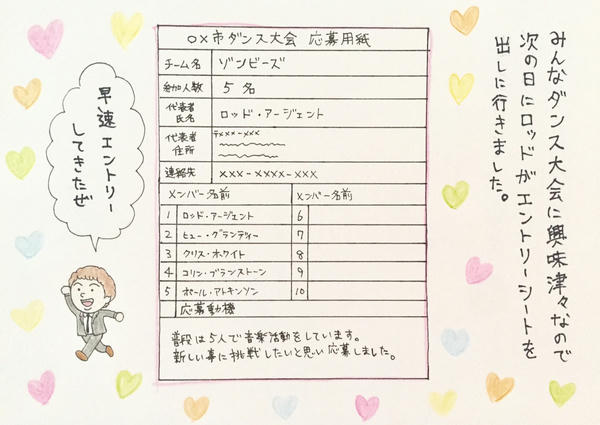 みんなダンス大会に興味津々なので
次の日にロッドがエントリーシートを
出しに行きました。
○×市ダンス大会 応募用紙
チーム名 ゾンビーズ
参加人数 5名
代表者氏名 ロッド・アージェント
代表者住所 〒xxx-xxx
連絡先 xxx-xxxx-xxx
メンバー名前 メンバー名前
1 ロッド・アージェント 6
2 ヒュー・グランディー 7
3 クリス・ホワイト 8
4 コリン・ブランストーン 9
5 ポール・アトキンソン 10
応募動機
普段は5人で音楽活動をしています。
新しい事に挑戦したいと思い応募しました。
早速エントリー
してきたぜ